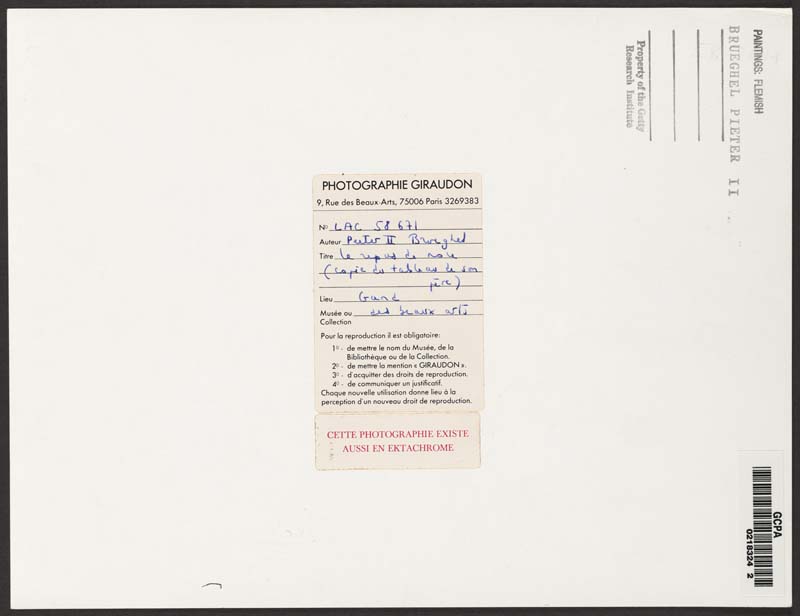 PAINTINGS: FLEMISH
BRUEGHEL PIETER II
Property of the Getty
Research Institute
PHOTOGRAPHIE GIRAUDON
9, Rue des Beaux-Arts, 75006 Paris 3269383
No LAC 58 671
Auteur Peeter II Brueghel
Titre le repas de noce
(copie du tableau de son
père)
Lieu Gand
Musée ou des beaux arts
Collection
Pour la reproduction il est obligatoire:
1o - de mettre le nom du Musée, de la
Bibliothèque ou de la Collection.
2o - de mettre la mention « GIRAUDON ».
3o - d'acquitter des droits de reproduction.
4o - de communiquer un justificatif.
Chaque nouvelle utilisation donne lieu à la
perception d'un nouveau droit de reproduction.
CETTE PHOTOGRAPHIE EXISTE
AUSSI EN EKTACHROME
GCPA
0218324 2